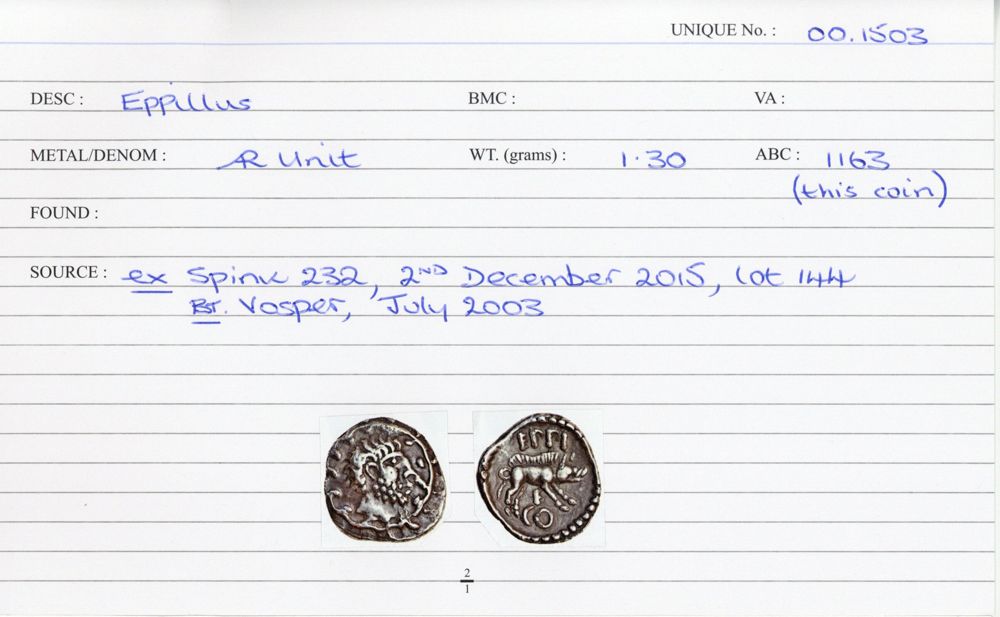 UNIQUE No. : 00.1503
DESC : Eppillus BMC : VA :
METAL/DENOM : AR Unit WT. (grams) : 1.30 ABC : 1163
(this coin)
FOUND :
SOURCE : ex Spink 232, 2ND December 2015, lot 144
BT. Vosper, July 2003
EPPI
CO
2
1